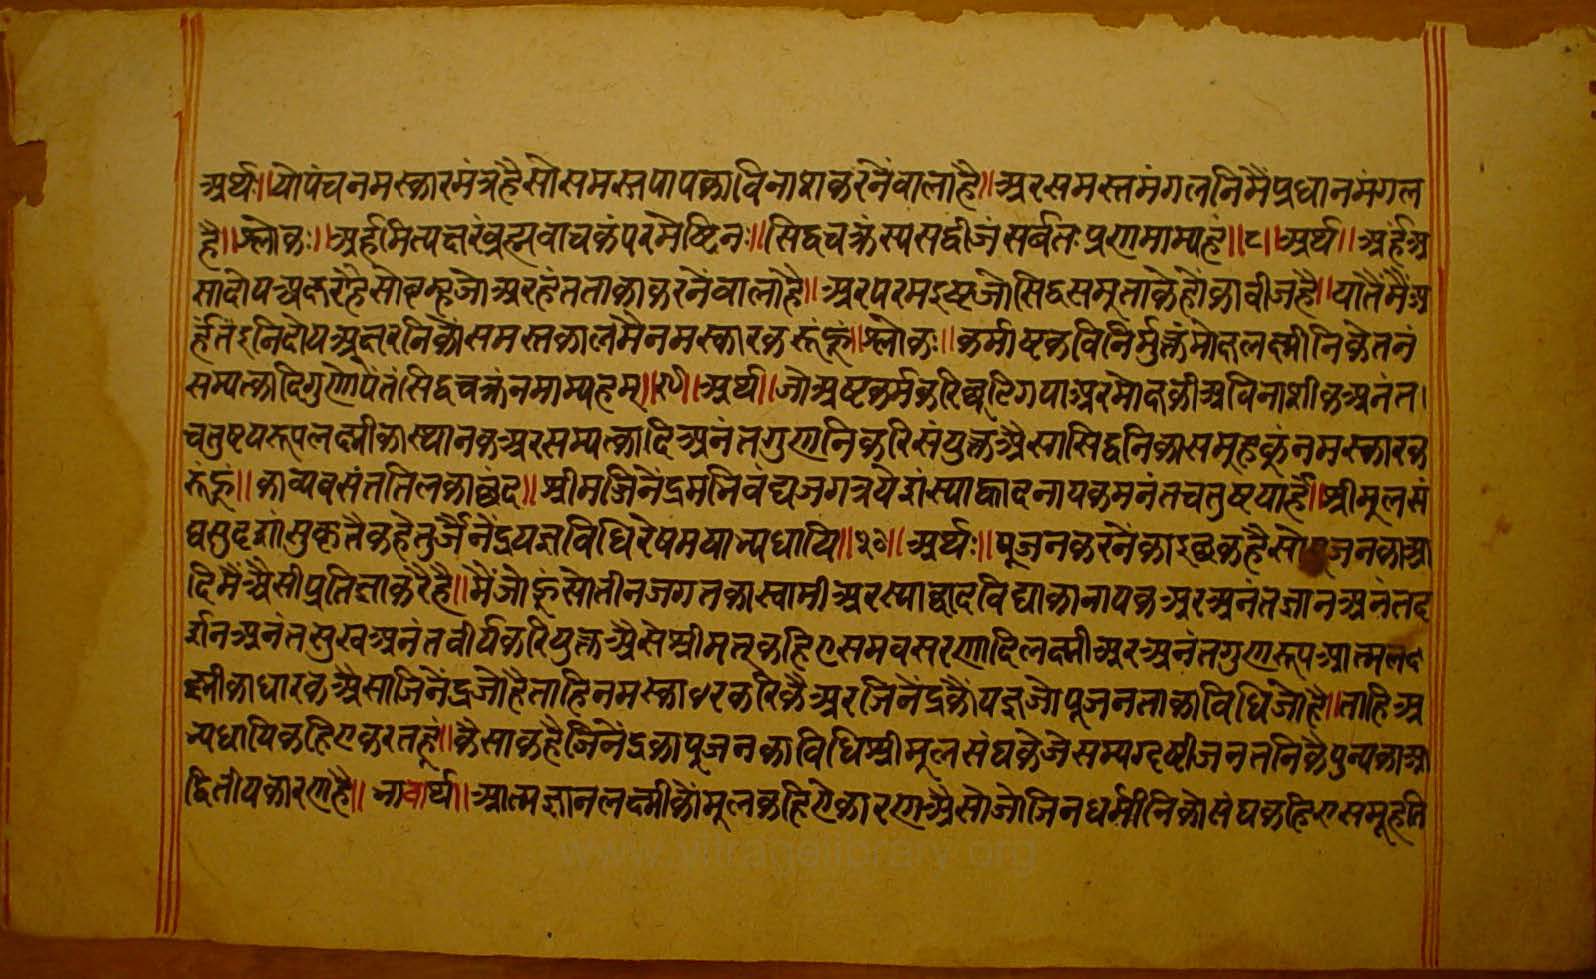 अर्थः॥ यो पंच नमस्कार मंत्र है सो समस्त पाप का विनाश करनें वाला है॥ अर समस्त मंगलनि मैं प्रधान मंगल
है॥ श्लोकः॥ अर्हमित्यक्षरं ब्रह्मवाचकं परमेष्टिनः॥ सिद्धचक्रंस्य सद्बीजं सर्बतः प्रणमाम्यहं॥८॥ अर्थ॥ अर्हं अ
सा दोय अक्षर है सो ब्रम्ह जो अरहंत ता का करनें वाला है॥ अर परम इष्ट जो सिद्ध समूह ता के हो का बीज है॥ या तैं मैं अ
र्हंत इनि दोय अक्षरनि कौं समस्त काल मै नमस्कार करूं हूं॥ श्लोकः॥ कर्माष्टकविनिर्मुक्तं मोक्षलक्ष्मीनिकेतनं
सम्यत्कादिगुणोपेतं सिद्धचक्रं नमाम्यहम्॥१९॥ अर्थ॥ जो अष्ट कर्म करि छूटि गया अर मोक्ष की अविनाशीक अनंत।
चतुष्टय रूप लक्ष्मी का स्थानक अर सम्यत्कादि अनंत गुणनि करि संयुक्त अैसा सिद्धनि का समूह कूं नमस्कार क
रूं हूं॥ काव्य वसंततिलका छंद॥ श्रीमज्जिनेंद्रमनिवंद्य जगत्रयेशं स्याद्वादनायकमनंतचतुष्टयार्हं॥ श्रीमूलसं
घसुदृशां सुकृतैकहेतुर्जैनेंद्रयज्ञविधिरेष मयाभ्यधायि॥२०॥ अर्थः॥ पूजन करनें का इछक है सो पूजन का आ
दि मैं अैसी प्रतिज्ञा करै है॥ मैं जो हूं सो तीन जगत का स्वामी अर स्याद्वाद विद्या का नायक अर अनंत ज्ञान अनंत द
र्शन अनंत सुख अनंत वीर्य करि युक्त अैसे श्रीमत् कहिए समवसरणादि लक्ष्मी अर अनंत गुण रूप आत्म लक्ष
क्ष्मी का धारक अैसा जिनेंद्र जो है ताहि नमस्कार करि कै अर जिनेंद्र कौ यज्ञ जो पूजन ता का विधि जो है॥ ताहि अ
भ्यधायि कहिए करत हूं॥ कैसा क है जिनेंद्र का पूजन का विधि श्रीमूलसंघ के जे सम्यग्दृष्टी जन तनि कै पुन्य का आ
द्वितीय कारण है॥ भावार्थ॥ आत्म ज्ञान लक्ष्मी कौ मूल कहिऐ कारण अैसो जो जिनधर्मीनि को संघ कहिए समूह ति
www.vitragelibrary.org